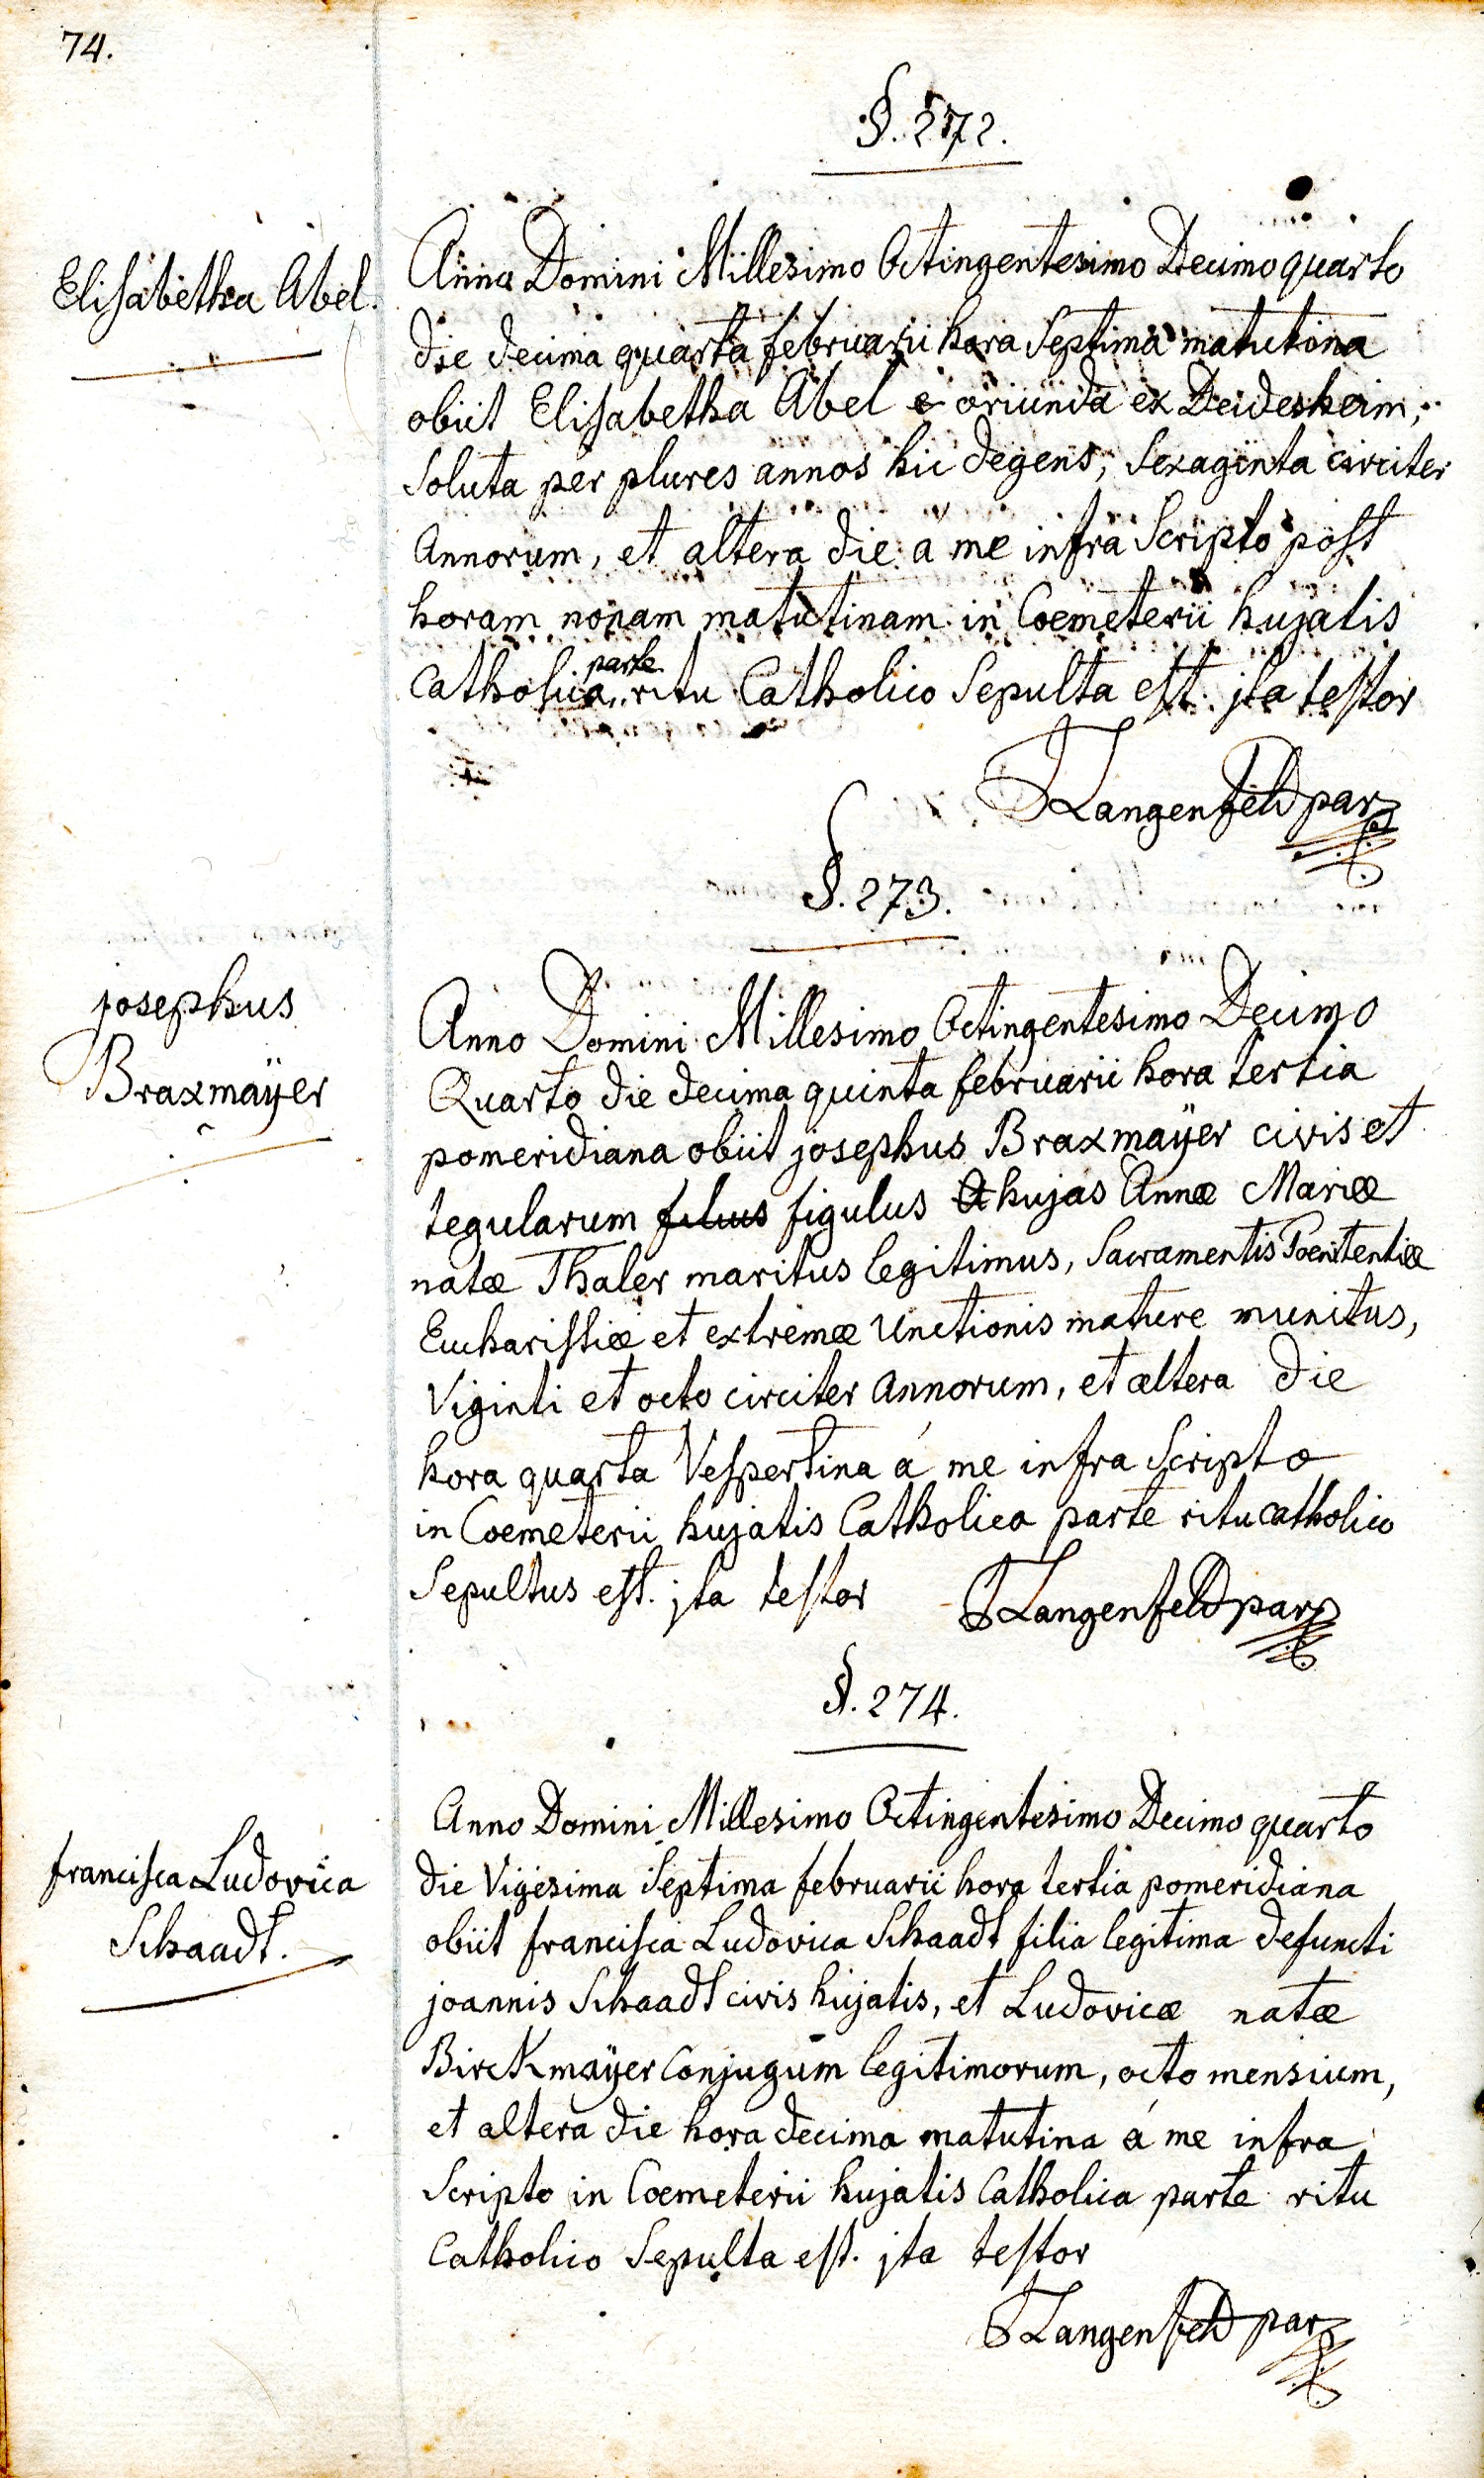 74.
§. 272.
Elisabetha Abel.
Anno Domini Millesimo Octingentesimo Decimo quarto
die decima quarta februarii hora Septima matutina
obiit Elisabetha Abel e oriunda ex Deidesheim,
soluta per plures annos hic degens, sexaginta circiter
Annorum, et altera die á me infra Scripto post
horam nonam matutinam in Coemeterii hujatis
parte
Catholica ritu Catholico Sepulta est. jta testor
Langenfeld par
§. 273.
josephus
Braxmaÿer
Anno Domini Millesimo Octingentesimo Decimo
Quarto die decima quinta februarii hora tertia
pomeridiana obiit josephus Braxmaÿer civis et
tegularum filius figulus hujas Annæ Mariæ
natæ Thaler maritus legitimus, Sacramentis Poenitentiæ
Eucharistiæ et extremæ Unctionis mature munitus,
Viginti et octo circiter Annorum, et altera die
hora quarta Vespertina á me infra Scripto
in Coemeterii hujatis Catholica parte ritu catholico
Sepultus est. jta testor Langenfeld par
§. 274.
francisca Ludovica
Schaadt.
Anno Domini Millesimo Octingentesimo Decimo quarto
die Vigesima Septima februarii hora tertia pomeridiana
obiit francisca Ludovica Schaadt filia legitima defuncti
joannis Schaadt civis hujatis, et Ludovicæ natæ
Birckmaÿer Conjugum legitimorum, octo mensium,
et altera die hora decima matutina á me infra
Scripto in Coemeterii hujatis Catholica parte ritu
Catholico Sepulta est. jta testor
Langenfeld par